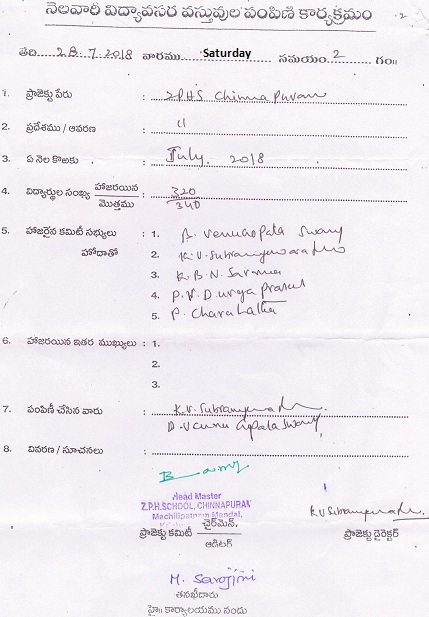 నెలవారీ విద్యావసర వస్తువుల పంపిణి కార్యక్రమం
తేది 28.7.2018 వారము Saturday సమయం 2 గం॥
1. ప్రాజెక్టు పేరు : ZPHS Chinnapuram
2. ప్రదేశము / ఆవరణ : 〃
3. ఏ నెల కొఱకు : July. 2018
4. విద్యార్థుల సంఖ్య హాజరయిన : 320
మొత్తము 340
5. హాజరైన కమిటీ సభ్యులు : 1. B. Venugopala Swamy
హోదాతో 2. K.V. Subramanyeswara
3. K.B.N. Sarma
4. P.V. Durga Prasad
5. P. Charulatha
6. హాజరయిన ఇతర ముఖ్యులు : 1.
2.
3.
7. పంపిణీ చేసిన వారు : K.V.
Venu Gopala Swamy
8. వివరణ / సూచనలు :
Head Master
Z.P.H.SCHOOL, CHINNAPURAM
Machilipatnam Mandal,
ప్రాజెక్టు కమిటీ చైర్‌మెన్, ప్రాజెక్టు డైరెక్టర్
ఆడిటర్
M. Sarojini
తనఖీదారు
హై॥ కార్యాలయము నందు